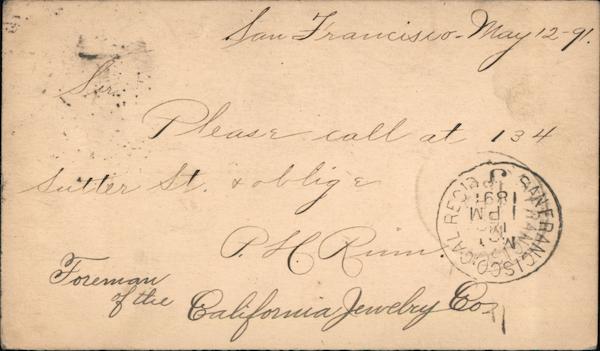 San Francisco - May 12 - 91.
Sir
Please call at 134
Sutter St. & oblige
P. H. Rinn.
Foreman
of the
California Jewelry Co.
SAN FRANCISCO, CAL. REC'D
1 PM
1891